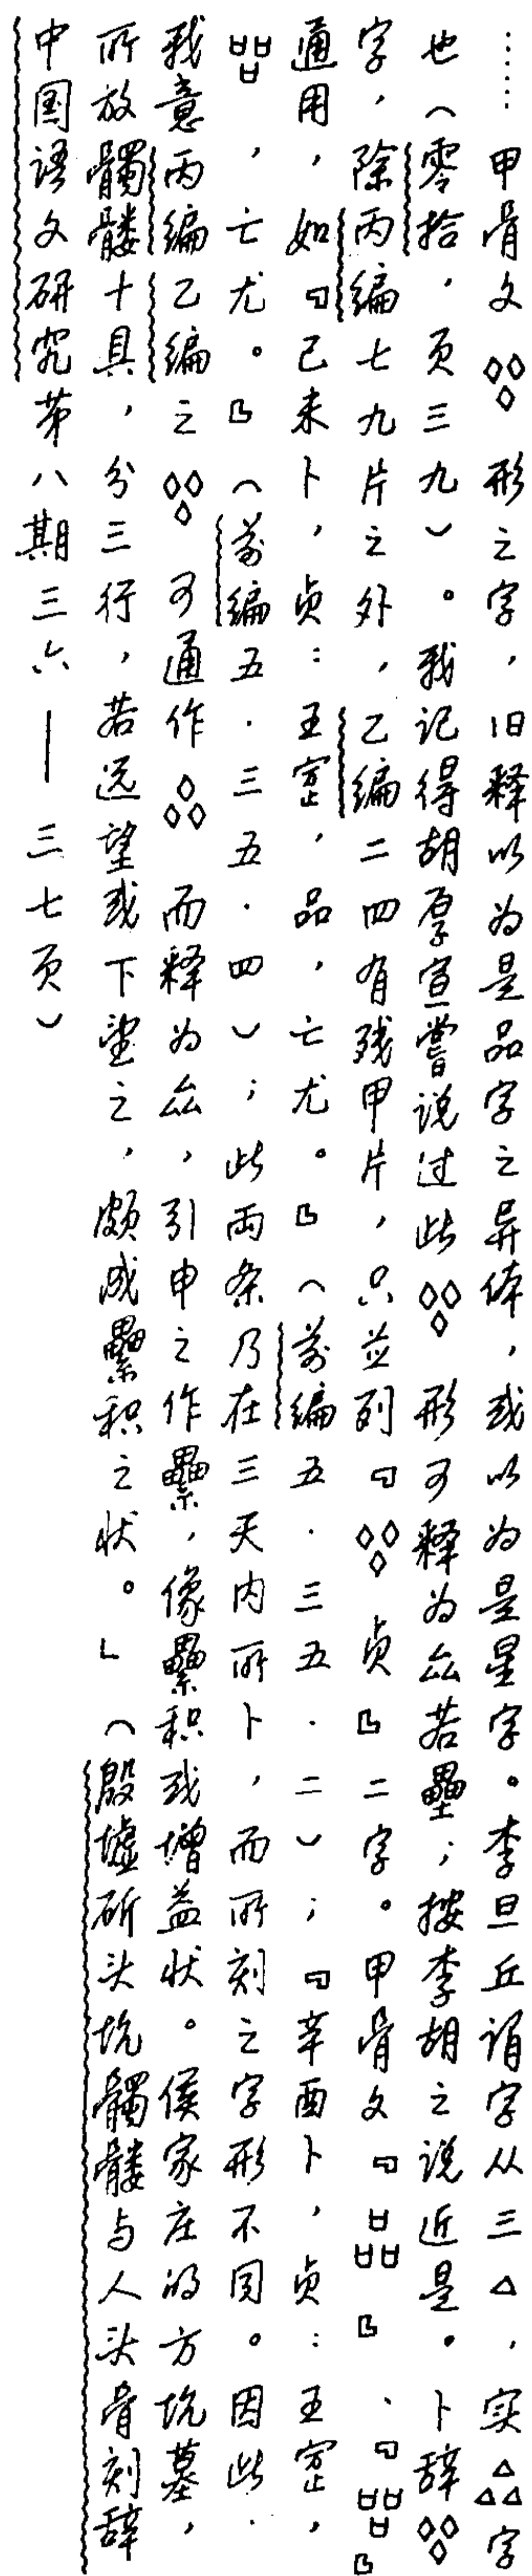 ……甲骨文形之字，旧释以为是品字之异体，或以为是星字。李旦丘谓字从三△，实字
也（零拾，页三九）。我记得胡厚宣尝说过此形可释为厽若壘；按李胡之说近是。卜辞
字，除丙编七九片之外，乙编二四有残甲片，只並列『贞』二字。甲骨文『』、『』
通用，如『己未卜，贞：王㝉，品，亡尤。』（前编五．三五．二）；『辛酉卜，贞：王㝉，
，亡尤。』（前编五．三五．四）；此两条乃在三天内所卜，而所刻之字形不同。因此．
我意丙编乙编之可通作而释为厽，引申之作纍，像纍积或增益状。侯家庄的方坑墓，
所放髑髅十具，分三行，若远望或下望之，颇成纍积之状。」（殷墟斫头坑髑髅与人头骨刻辞
中国语文研究第八期三六——三七页）